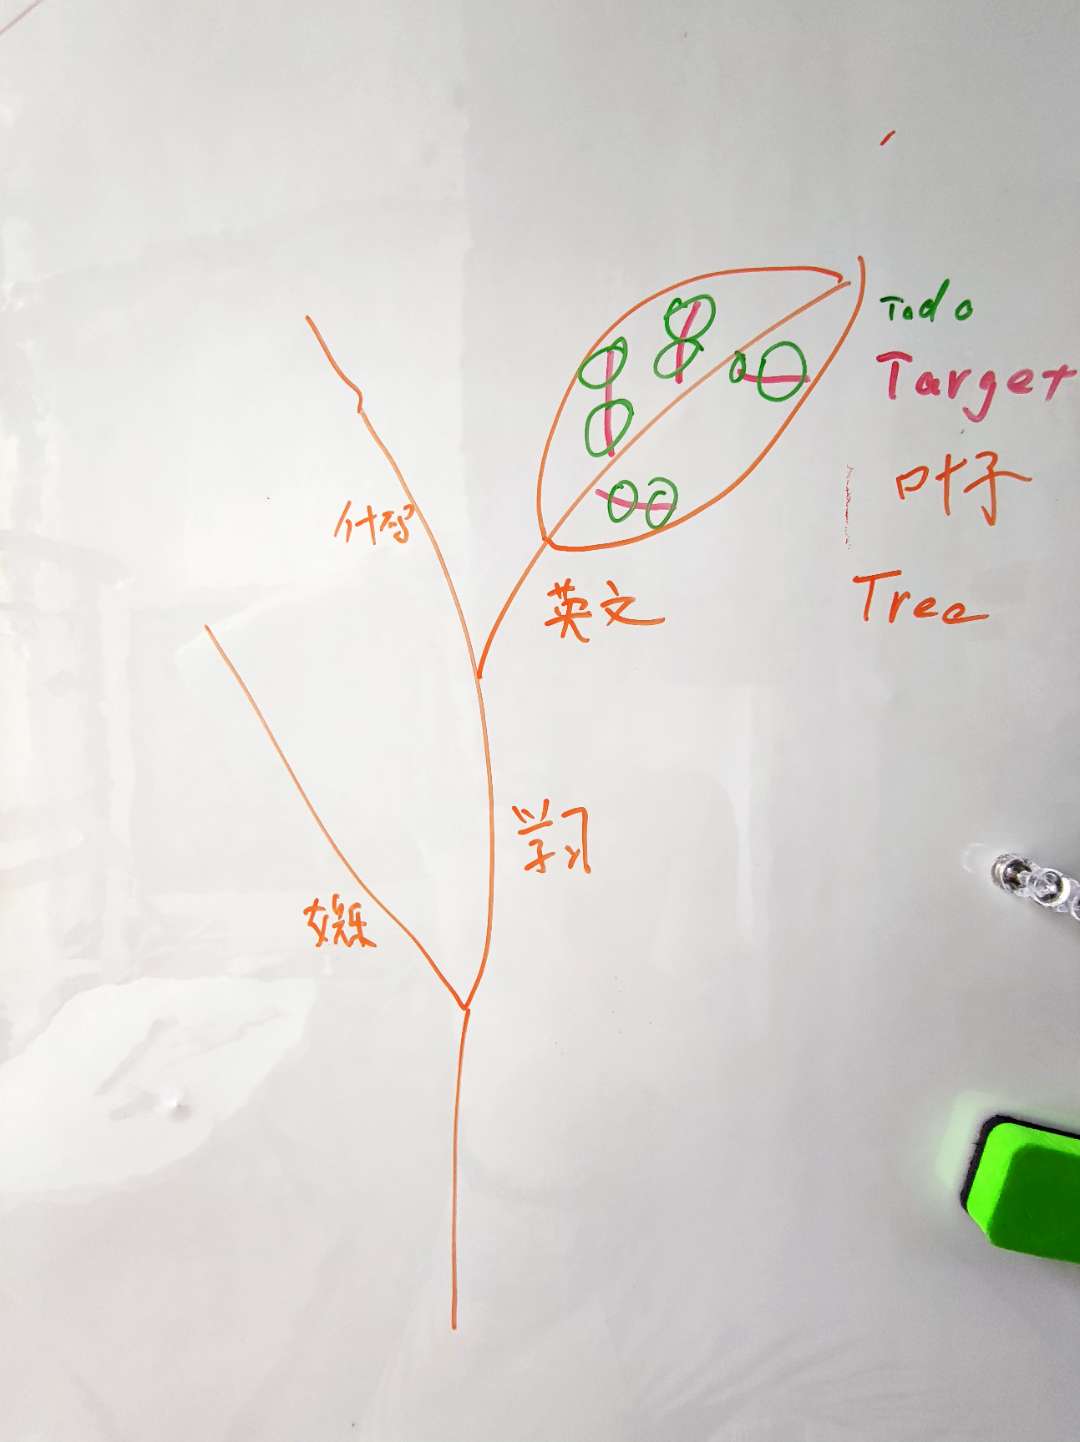 Todo
Target
叶子
Tree
英文
学习
娱乐